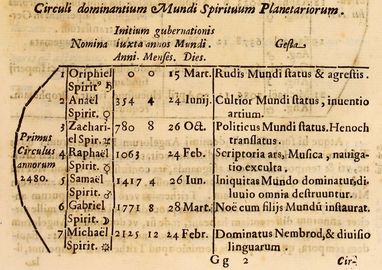 Circuli dominantium Mundi Spirituum Planetariorum.
Initium gubernationis
Nomina iuxta annos Mundi. Gesta.
Anni. Menses. Dies.
1 Oriphiel 0 0 15 Mart. Rudis Mundi status & agrestis.
Spirit9 ♄
2 Anaël 354 4 24 Iunij. Cultior Mundi status, inuentio
Spirit. ♀ artium.
3 Zachari- 780 8 26 Oct. Politicus Mundi status. Henoch
el Spir. ♃ translatus.
Primus
Circulus
annorum
2480.
4 Raphaël 1063 24 Feb. Scriptoria ars, Musica, nauiga-
Spirit. ☿ tio exculta.
5 Samaël 1417 4 26 Iun. Iniquitas Mundo dominatur, di-
Spirit. ♂ luuio omnia destruuntur.
6 Gabriel 1771 8 28 Mart. Noë cum filijs Mundũ instaurat.
Spirit. ☽
7 Michaël 2125 12 24 Febr. Dominatus Nembrod, & diuisio
Spirit. ☼ linguarum.
Gg 2 Cir-